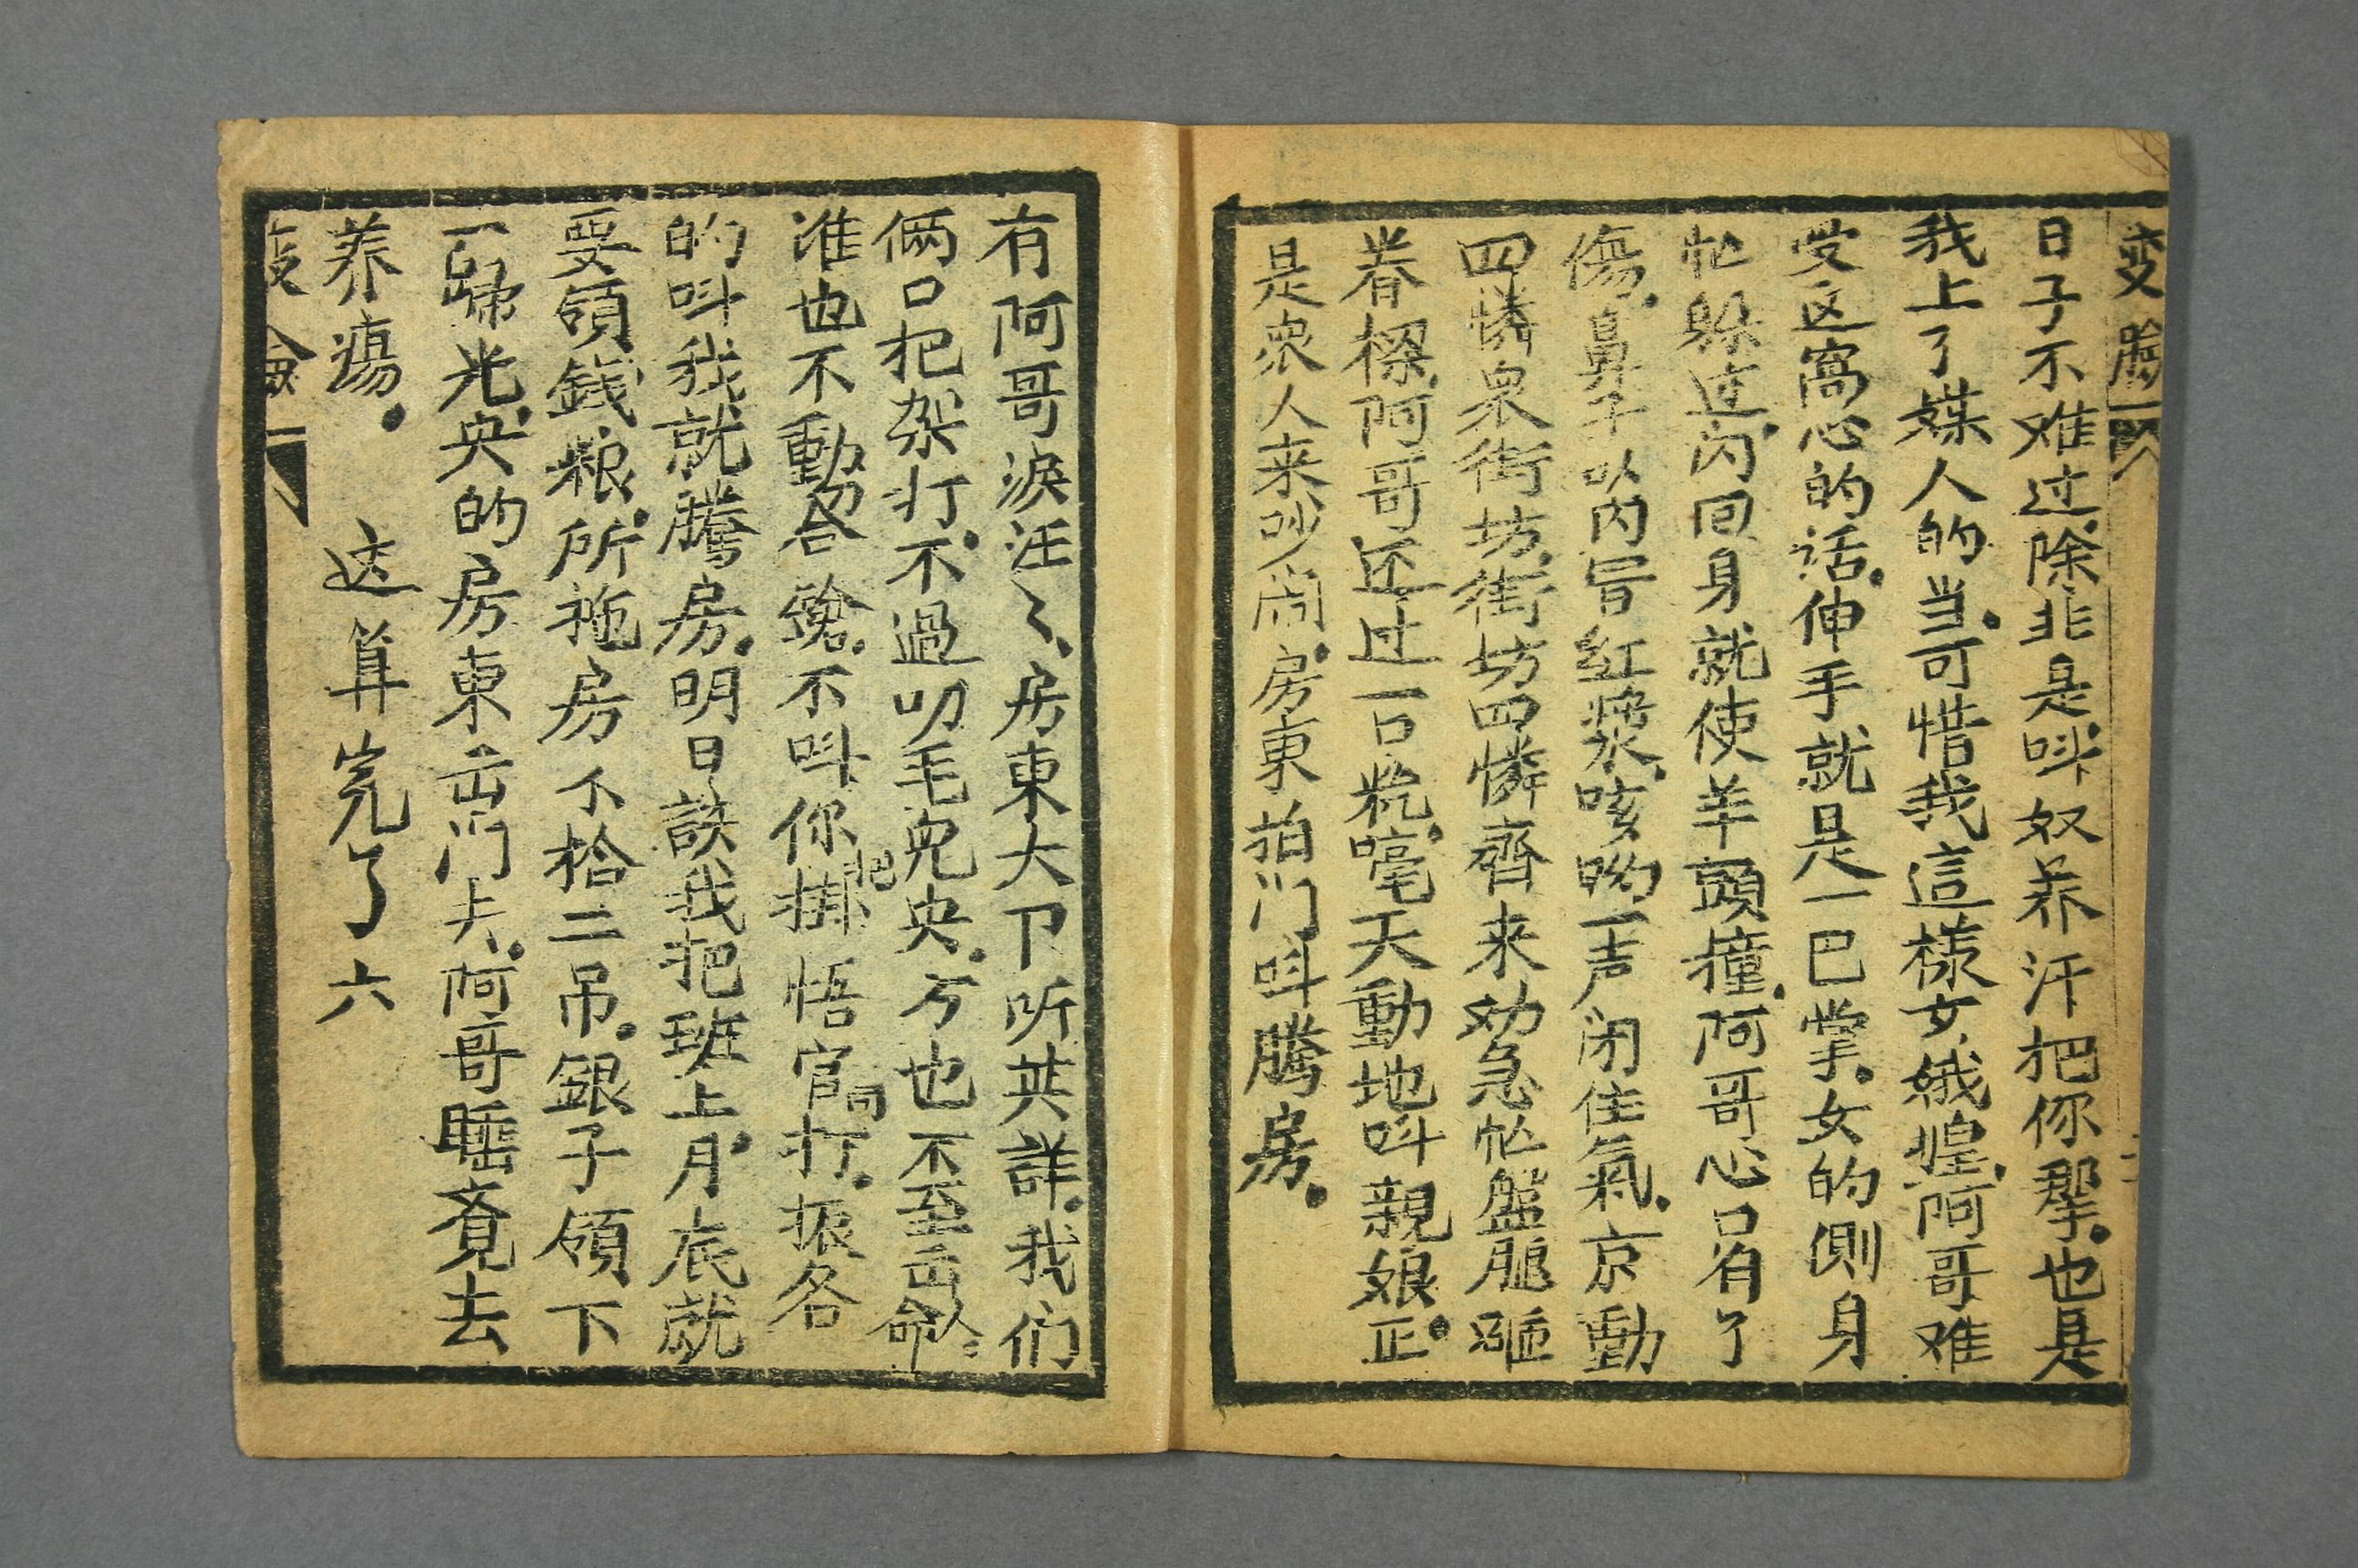 变
日子不难过除非是呌奴养汗把你也是
我上了媒人的当可惜我這樣女娥煌阿哥难
受这窩心的话伸手就是一巴掌女的側身
忙躱过闪回身就使羊頭撞阿哥心口有了
傷鼻子以内冒红漿咳哟一声闭住氣京動
四憐衆街坊街坊四憐齊来劝急忙盤腿
眷樑阿哥还过一口氣嚎天動地呌親娘正
是衆人来吵闹房東拍门呌腾房
有阿哥淚汪〻房東大卩听其詳我们
俩口把架打不過叨毛児央亏也不至出人命
准也不動刀合鎗不呌你掛悟官打振各
肥
司
的呌我就騰房明日該我把班上月底就
要領錢粮所拖房不拾二吊銀子領下
一百歸光央的房東出门去阿哥睡覔去
养瘍 这算完了六